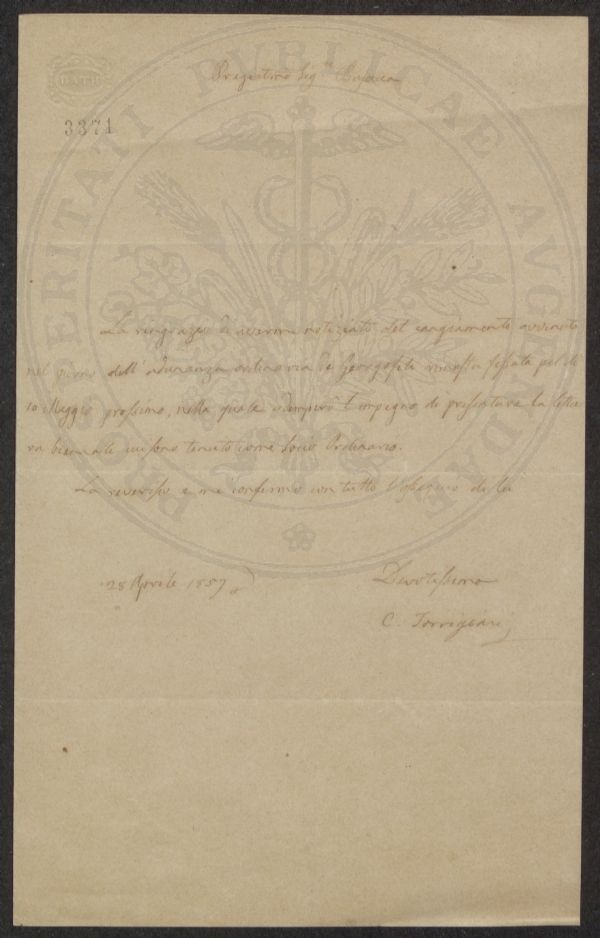 BATH
Pregiatmo Sigr
3371
PROSPERITATI PUBLICAE AUGENDAE
La ringrazio di avermi notiziato del cangiamento avvenuto
nel giorno dell'adunanza ordinaria de Georgofili fissata pel dì
10 Maggio prossimo, nella quale adempirò l'impegno di presentare la lettu
ra biennale cui sono tenuto come Socio Ordinario.
La reverisco e mi confermo con tutto l'ossequio di lei
28 Aprile 1857
Devotissimo
C. Torrigiani